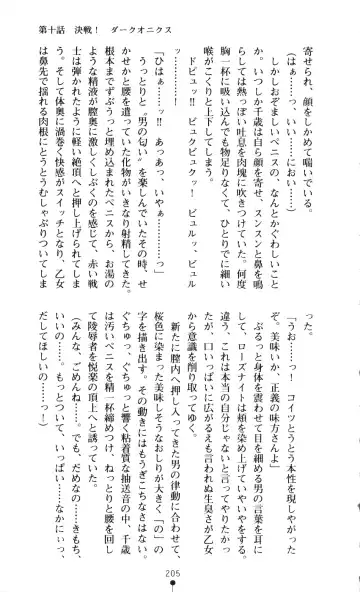 第十話　決戦！　ダークオニクス
寄せられ、顔をしかめて喘いでいる。
しかしおぞましいペニスの、なんとかぐわしいこと
か。いつしか千歳は自ら顔を寄せ、スンスンと鼻を鳴
らしては熱っぽい吐息を肉塊に吹きつけていた。何度
胸一杯に吸い込んでも物足りなくて、ひとりでに細い
喉がこくりと上下してしまう。
ドピュッ！　ビュクビュクッ！　ビュルッ、ビュル
ゥ……ッ！
「ひはぁ……ッ！　あっあっ、いやぁ……っ」
うっとりと〝男の匂い〟を楽しんでいたその時、せ
かせかと腰を遣っていた化物がいきなり射精してきた。
根本までずぶうっと埋め込まれたペニスから、お湯の
ような精液が膣奥に激しくしぶくのを感じ、赤い戦
士は弾かれたように軽い絶頂へと押し上げられてしま
う。そして体奥に渦巻く快感がスイッチとなり、乙女
は鼻先で揺れる肉根にとうとうむしゃぶりついてしま
った。
「うお……っ！　コイツとうとう本性を現しやがった
ぞ。美味いか、正義の味方さんよ」
ぶるっと身体を震わせて目を細める男の言葉を耳に
して、ローズナイトは頬を染め上げていやいやをする。
違う、これは本当の自分じゃないと言ってやりたかっ
たが、口いっぱいに広がるえも言われぬ生臭さが乙女
から意識を削り取ってゆく。
新たに膣内へ押し入ってきた男の律動に合わせて、
桜色に染まった美味しそうなおしりが大きく「の」の
字を描き出す。その動きにはもうぎこちなさはなく、
ぐちゅっ、ぐちゅっと響く粘着質な抽送音の中、千歳
は汚いペニスを精一杯締めつけ、ねっとりと腰を回し
て陵辱者を悦楽の頂上へと誘っていた。
（みんな、ごめんね……。でも、だめなの……きもち、
いいの……。もっとついて、いっぱい……なかにぃっ、
だしてほしいの……っ！）
205